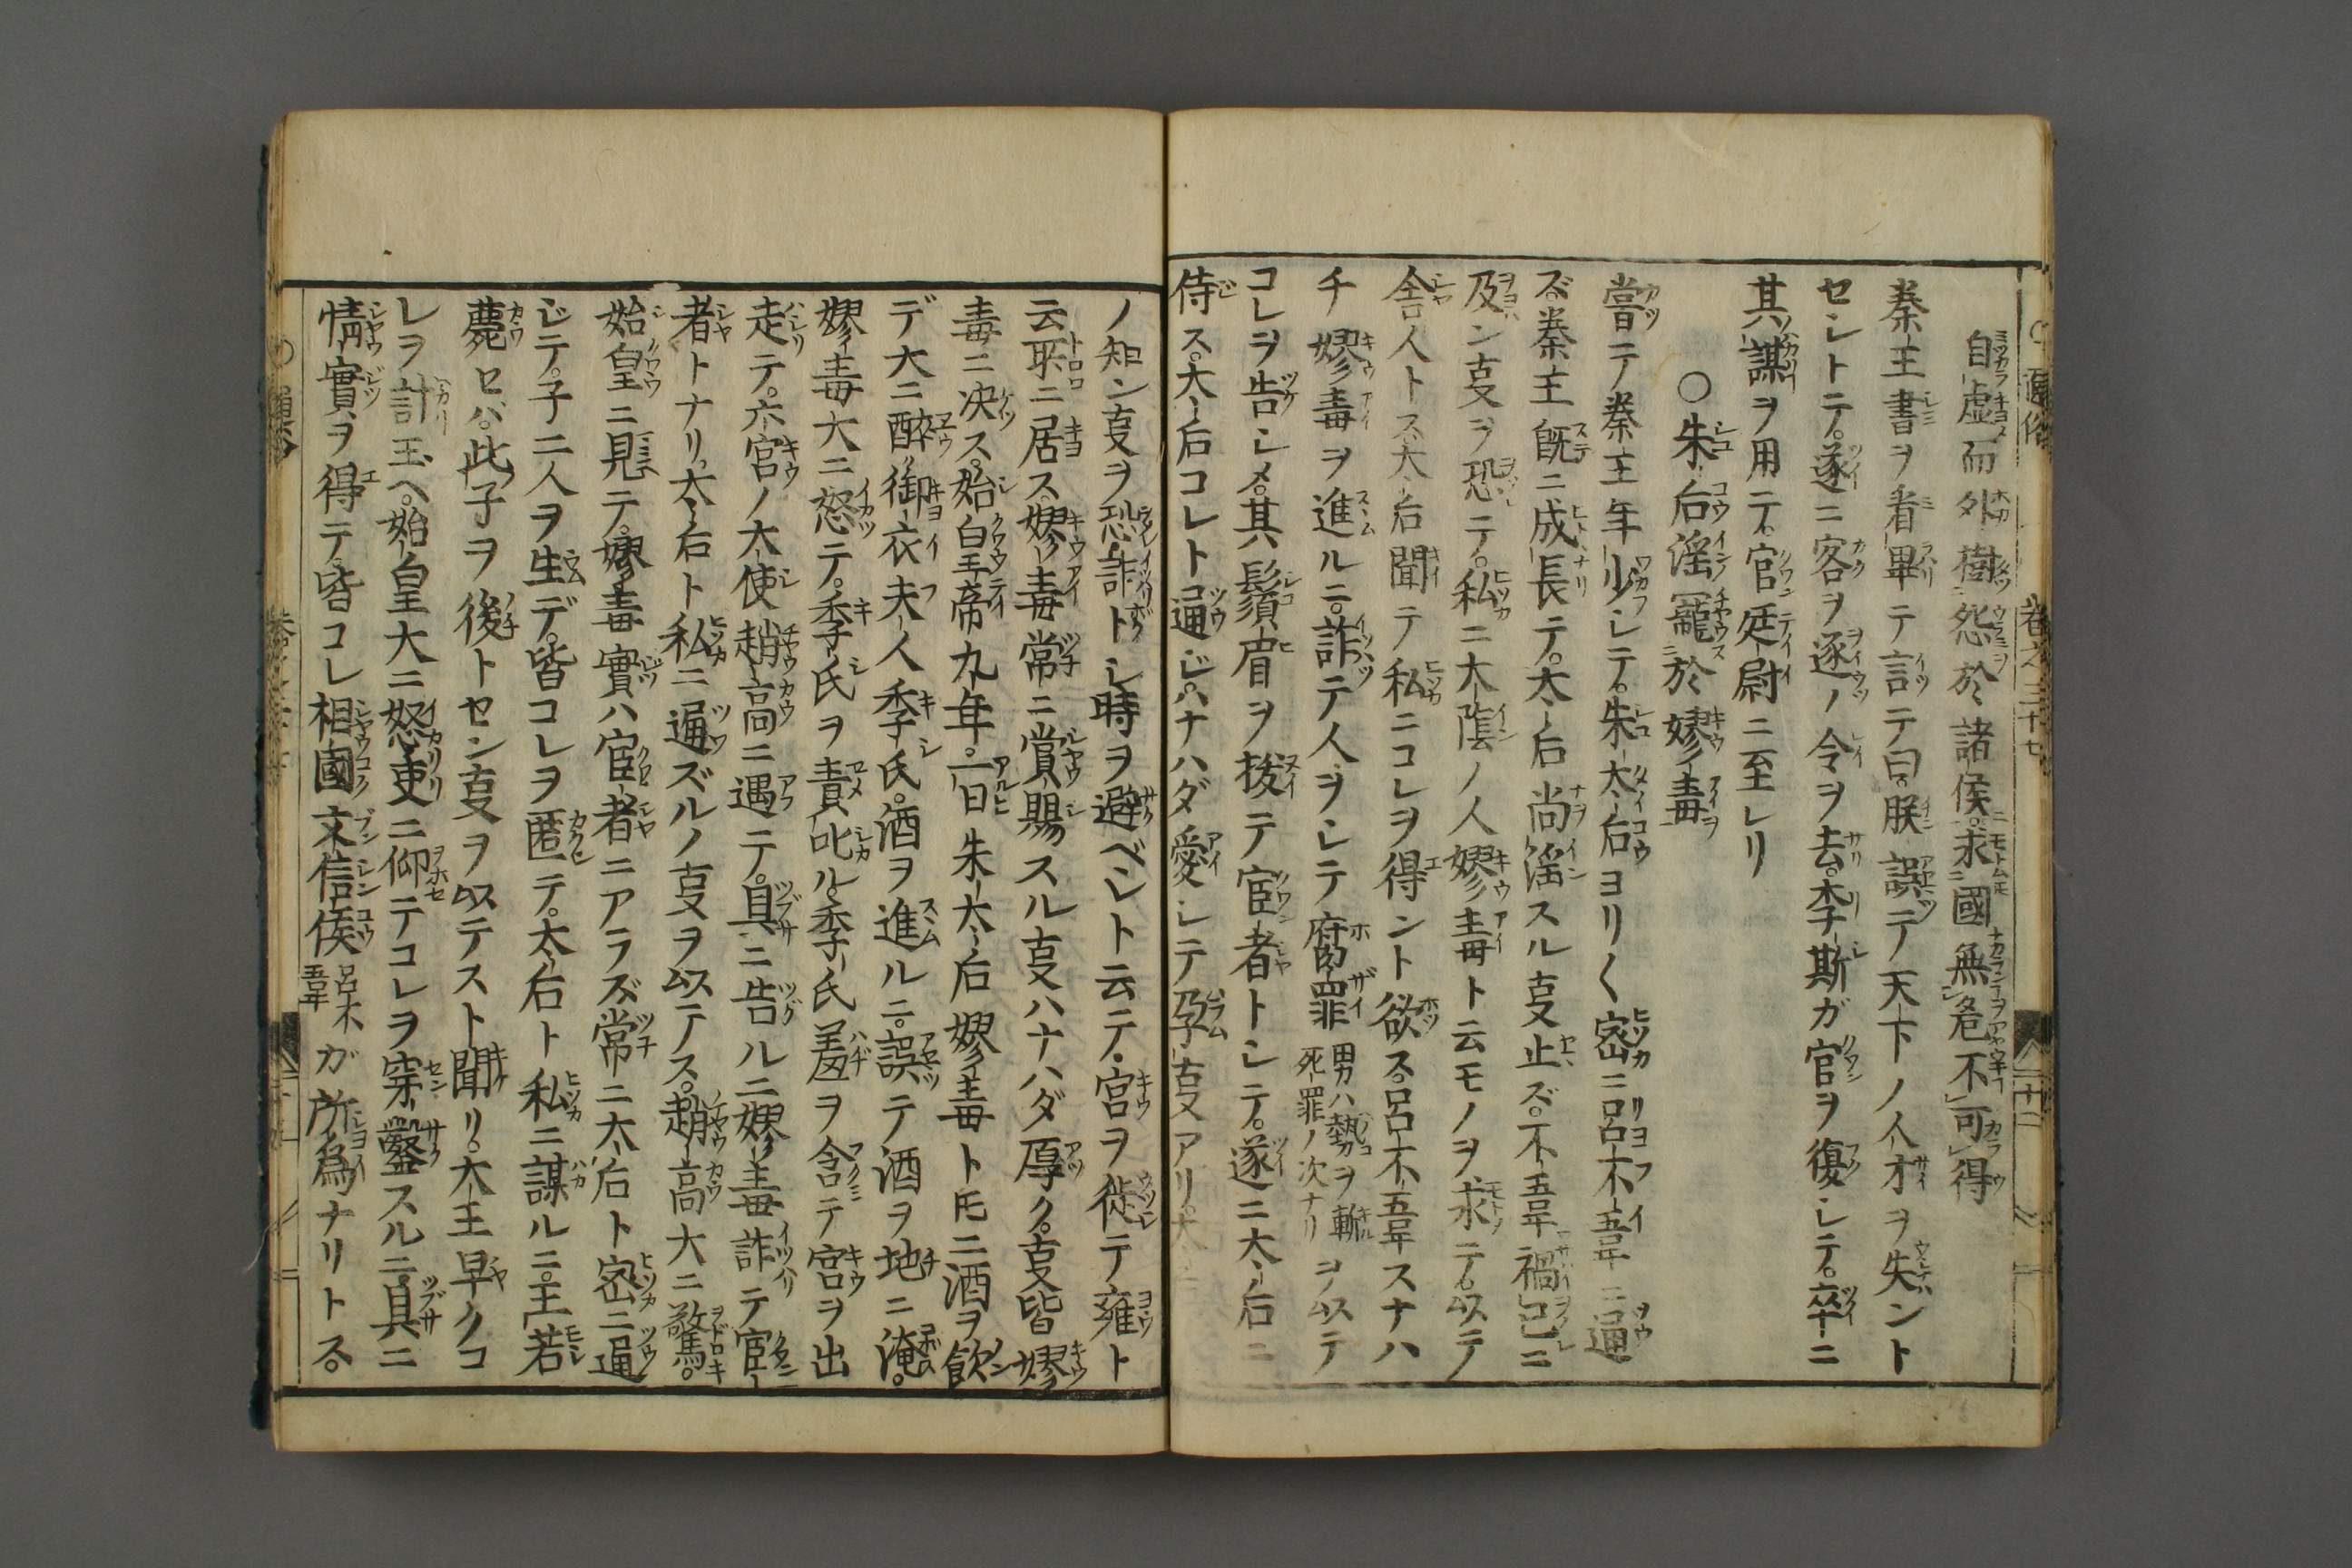 自虚而外樹怨於諸侯求國無危不可得
秦王書ヲ看畢テ言テ曰朕誤テ天下ノ人才ヲ失ント
セシトテ。遂ニ客ヲ逐ノ令ヲ去。李斯ガ官ヲ復シテ。卒ニ
其謀ヲ用テ。官廷尉ニ至レリ
○朱后淫寵於嫪毐
嘗テ秦王年少シテ。朱太后ヨリ〱密ニ呂不韋ニ通
ズ。秦王既ニ成長テ。太后尚淫スル㕝止ズ。不韋禍已ニ
及ン㕝ヲ恐テ。私ニ大陰ノ人嫪毐ト云モノヲ求テ。以テ
舎人トス。太后聞テ私ニコレヲ得ント欲ス。呂不韋スナハ
チ嫪毐ヲ進ルニ。詐テ人ヲシテ腐罪男ハ勢ヲ斬死罪ノ次ナリヲ以テ
コレヲ告シメ。其鬚眉ヲ抜テ宦者トシテ。遂ニ太后ニ
侍ス。太后コレト通ジ。ハナハダ愛シテ孕㕝アリ。
ノ知ン㕝ヲ恐詐トシ時ヲ避ベシト云テ。宮ヲ徙テ雍ト
云所ニ居ス。嫪毐常ニ賞賜スル㕝ハナハダ厚ク。㕝皆嫪
毐ニ决ス。始皇帝九年。一日朱太后嫪毐ト𪜈ニ酒ヲ飲
デ大ニ酔。御衣夫人季氏。酒ヲ進ルニ。誤テ酒ヲ地ニ淹。
嫪毐大ニ怒テ。季氏ヲ責叱ル。季氏羞ヲ含テ宮ヲ出
走テ。六宮ノ大使趙高ニ遇テ。具ニ告ルニ嫪毐詐テ宦
者トナリ。太后ト私ニ通ズルノ㕝ヲ以テス。趙高大ニ驚。
始皇ニ見テ。嫪毐實ハ宦者ニアラズ。常ニ太后ト密ニ通
ジテ。子二人ヲ生デ。皆コレヲ匿テ。太后ト私ニ謀ルニ。王若
薨セバ。此子ヲ後トセン㕝ヲ以テスト聞リ。大王早クコ
レヲ計玉ヘ。始皇大ニ怒。吏ニ仰テコレヲ穿鑿スルニ。具ニ
情實ヲ得テ。皆コレ相國文信侯呂不韋ガ所為ナリトス。